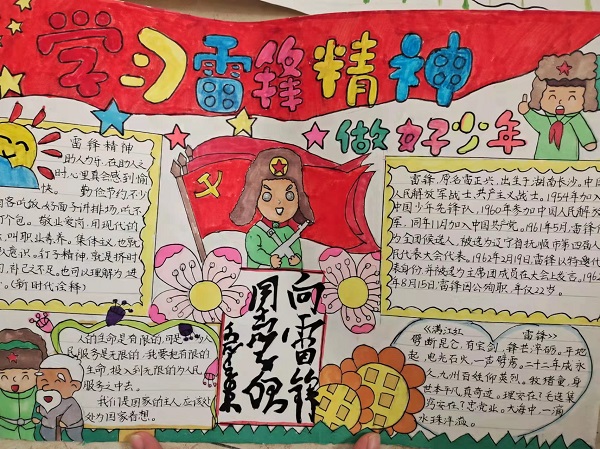 学习雷锋精神
做好少年
雷锋精神
助人为乐,在助人之
时,心里真会感到愉
快。 勤俭节约,不少
客吃饭好面子讲排场,吃不
打个包。敬业爱岗,用现代的
叫职业素养。集体主义,也就
人意识。钉子精神,就是挤时
自己不足,也可以理解为进
(新时代诠释)
雷锋,原名雷正兴,出生于湖南长沙。中国
人民解放军战士,共产主义战士。1954年加入
中国少年先锋队,1960年参加中国人民解放
军,同年11月加入中国共产党。1961年5月,雷锋作
为全团候选人,被选为辽宁省抚顺市第四届人
民代表大会代表。1962年2月19日,雷锋以特邀代
表身份,并被选为主席团成员在大会上发言。1962
年8月15日,雷锋因公殉职,年仅22岁。
人的生命是有限的,可是,为人
民服务是无限的,我要把有限的
生命,投入到无限的为人民
服务之中去。
我们是国家的主人,应该处
处为国家着想。
向雷锋
同志学习
毛泽东
《满江红 雷锋》
劈断昆仑,有宝剑,锋芒淬砺。平地
起,电光石火,一声劈雳。二十二年成永
人,九州百姓仰英烈。牧猪童,身
世本平凡,真奇迹。
大海中,一滴
水珠洋溢。